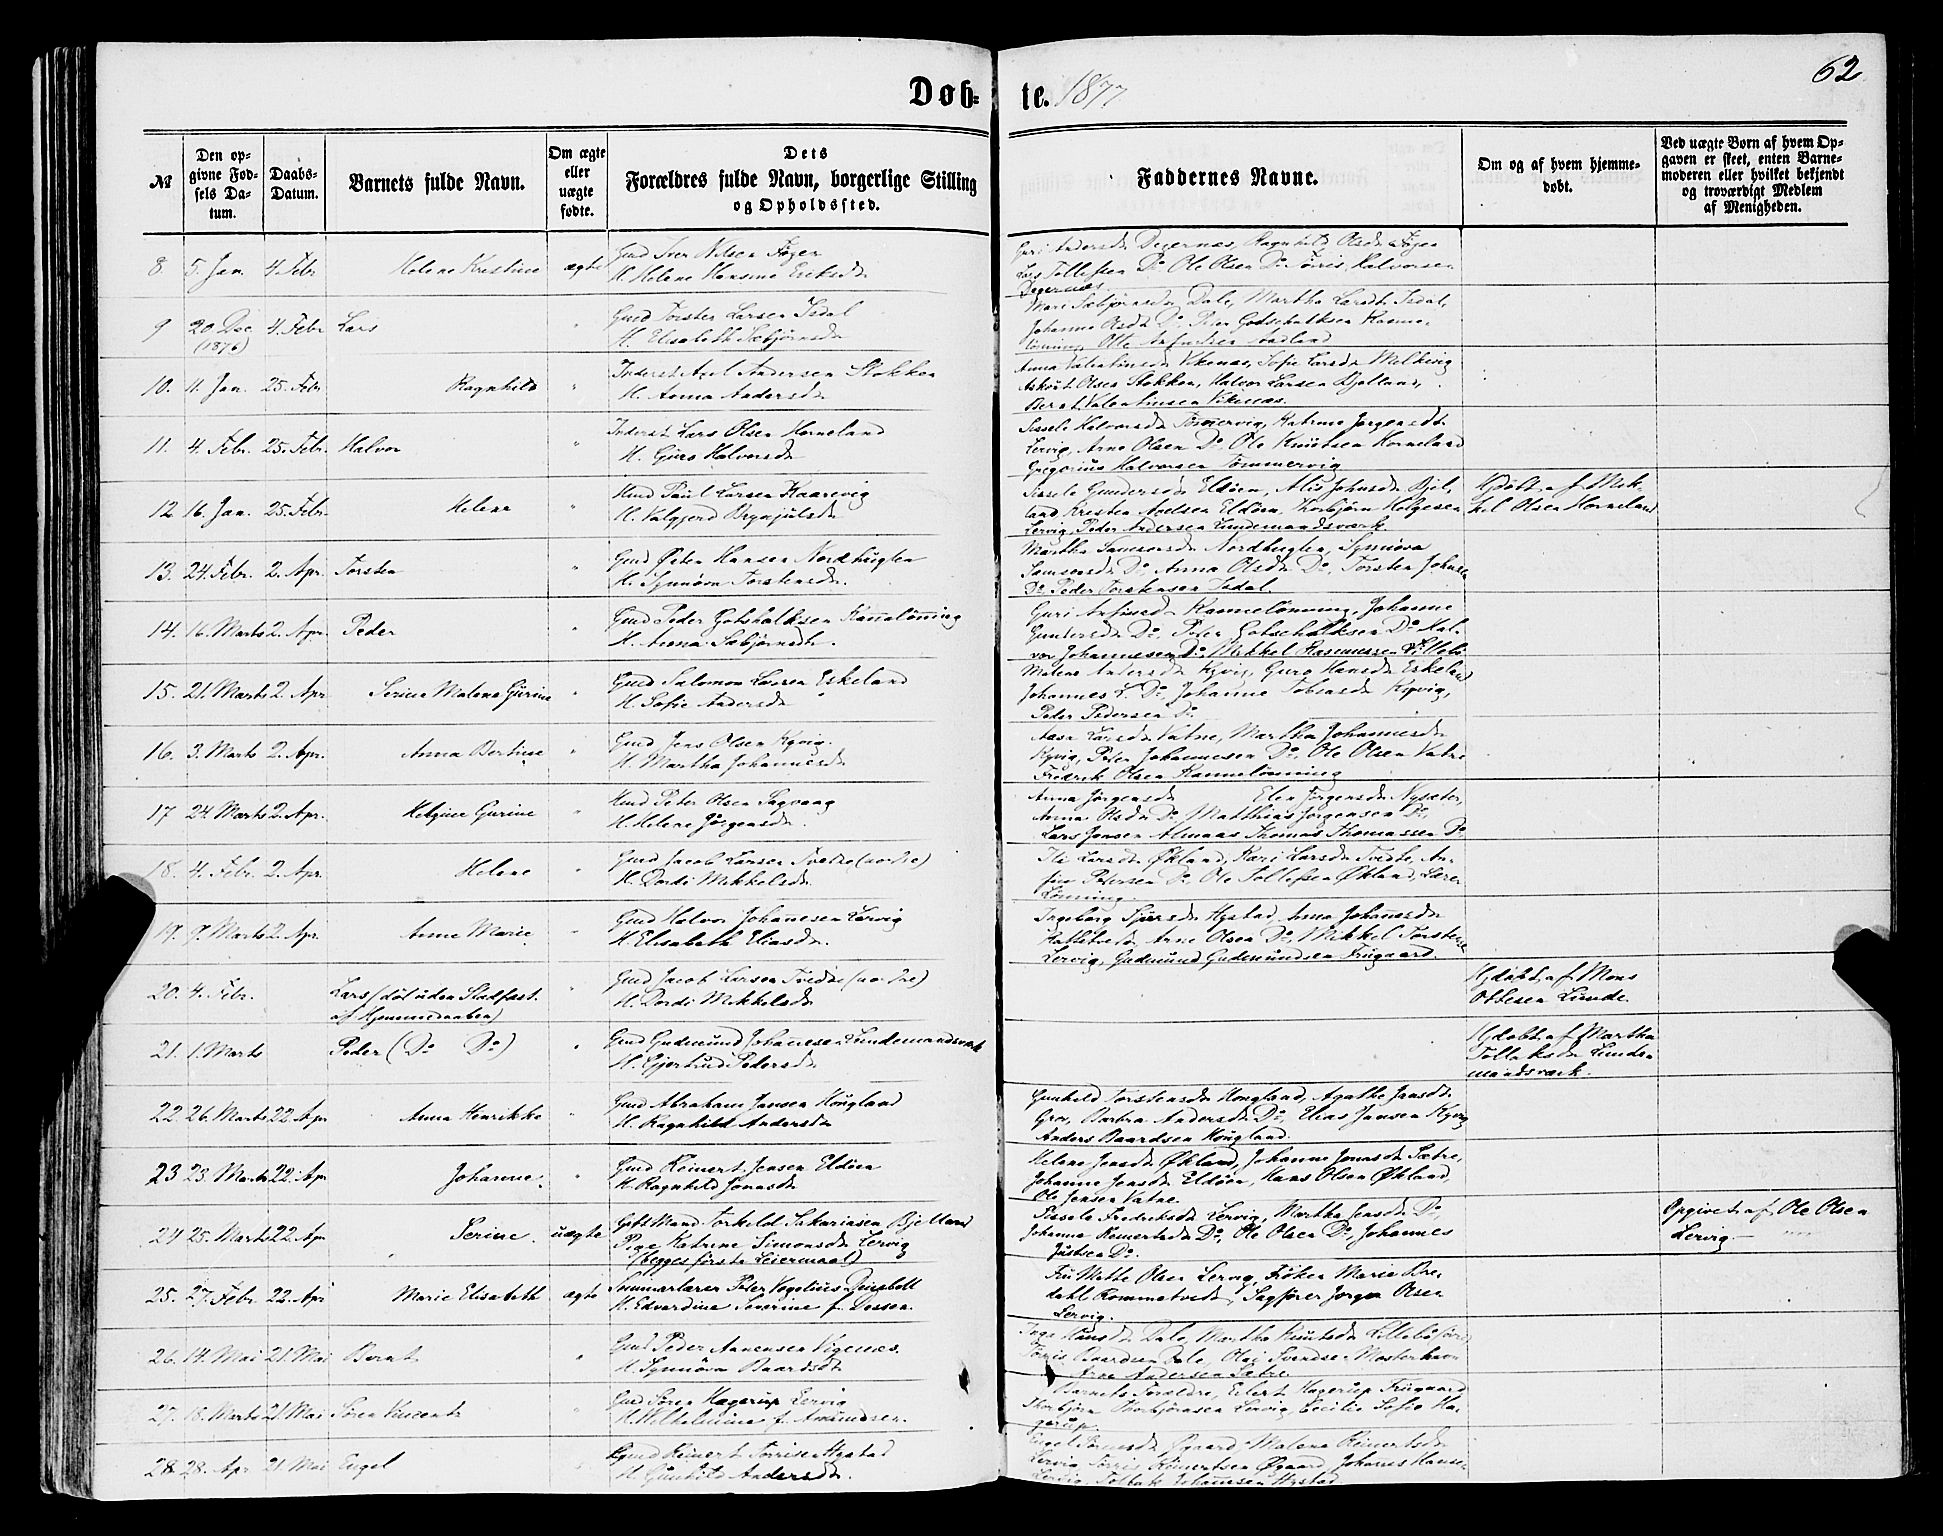 62
Døb- te. 1877
№
Den op-
givne Fød-
sels Da-
tum.
Daabs-
Datum.
Barnets fulde Navn.
Om ægte
eller
uægte
fødte.
Dets
Forældres fulde Navn, borgerlige Stilling
og Opholdssted.
Faddernes Navne.
Om og af hvem hjemme-
døbt.
Ved uægte Børn af hvem Op-
gaven er skeet, enten Barne-
moderen eller hvilket bekjendt
og troværdigt Medlem
af Menigheden.
8 5. Jan. 4. Febr Helene Kristine ægte
Gmd Sven Nilsen
H. Helene Hansine Eriksdr
Guri Andersdr Degernæs, Ragnhild Olsdr
Lars Tollefsen Do Ole Olsen Do Tørris Halvorsen
Degernæs.
9 20 Dec (1876) 4. Febr Lars "
Gmd Torster Larsen Isdal
H. Elisabeth Sæbjørnsdr
Mari Sæbjørnsdr Dale, Martha Larsdr Isdal,
Johanne Olsdr Do Peter Gotschalksen Kanne-
lønning
10. 11. Jan. 25. Febr Ragnhild "
Inderst Axel Andersen Stokken
H. Anna Andersdr
Anna Valentinsdr Vikenæs, Sofie Larsdr Melkevig
Olsen Stokken, Halvor Larsen Kjelland,
Bernt Valentinsen Vikenæs.
11. 4. Febr. 25. Febr. Halvor "
Inderst Lars Olsen Horneland
H. Guro Halvorsdr
Sissele Halvorsdr Tømmervig, Katrine Jørgensdr
Lervig, Arne Olsen Do Ole Knutsen Horneland
Gregorius Halvorsen Tømmervig
12 16. Jan. 25. Febr. Helene "
Hmd Paul Larsen Kaarevig
H. Valgjerd Brynjulsdr
Sissele Gundersdr Eldøen, Alis Johnsdr Bjel-
land Kristen Axelsen Eldøen, Thorbjørn Helgesen
Lervig, Peder Andersen Lundemandsværk
Hjdøbt af Mik-
kel Olsen Horneland
13. 24. Febr. 2. Apr. Torsten "
Gmd Peter Hansen Nordhuglen
H. Synnøva Torstensdr.
Martha Samsonsdr Nordhuglen, Synnøva
Samsonsdr Do Anna Olsdr Do, Torsten Johnsen
Do Peder Torstensen Isdal.
14. 16. Marts 2. Apr. Peder "
Gmd Peder Gotschalksen Kannelønning
H. Anna Sæbjørnsdr.
Guri Anfinsdr Kannelønning, Johanne
Gundersdr Do, Peter Gotschalksen Do Hal-
vor Johannessen Do, Mikkel Rasmussen Lillebø
15. 21. Marts 2. Apr Serine Malene Gurine "
Gmd Salomon Larsen Eskeland
H. Sofie Andersdr
Malene Andersdr Kyvig, Guro Hansdr Eskeland
Johannes L. Do, Johanne Tobiasdr Kyvig,
Peter Pedersen Do
16. 3. Marts 2. Apr. Anna Bertine "
Gmd Jens Olsen Kyvig.
H. Martha Johannesdr
Aasa Larsdr Vatne, Martha Johannesdr
Kyvig, Peter Johannesen Do, Ole Olsen Vatne
Fredrik Olsen Kannelønning
17 24 Marts 2. Apr. Helgine Gurine "
Hmd Peter Olsen Sagvaag
H. Helene Jørgensdr.
Anna Jørgensdr Elen Jørgensdr Nysæter,
Anna Olsdr Do Matthias Jørgensen Do,
Lars Jensen Almaas Thomas Thomassen Do
18. 4. Febr. 2. Apr. Helene "
Gmd Jacob Larsen Tvedte (nordre)
H. Dordi Mikkelsdr.
Larsdr Økland, Kari Larsdr Tvedte, An-
fin Petersen Do, Ole Tollefsen Økland, Lærer
Lønning.
19. 9. Marts 2. Apr. Anne Marie "
Gmd Halvor Johanesen Lervig
H. Elisabeth Eliasdr.
Ingeborg Sjursdr Hystad Anna Johanesdr
Arne Olsen Do, Mikkel Torstensen
Lervig, Gudmund Gudmundsen Frugaard
20. 4. Febr. Lars (død uden Stadfæst.
af Hjemmedaaben) "
Gmd Jacob Larsen Tvedte (nordre)
H. Dordi Mikkelsdr
Hjdøbt af Mons
Ottesen Lunde.
21. 1. Marts Peder (Do Do) "
Gmd Gudmund Johanesen Lundemandsværk
H. Gjertrud Pedersdr
Hjdøbt af Martha
Tollaksdr Lunde-
mandsværk.
22 26. Marts 22 Apr Anna Henrikke "
Gmd Abraham Jansen Hougland
H. Ragnhild Andersdr
Gunhild Torstensdr Hougland, Agathe Jansdr
Barbra Andersdr Do, Elias Jansen Kyvig
Anders Baardsen Hougland.
23 23. Marts 22. Apr Johanne. "
Gmd Reinert Jensen Eldøen
H. Ragnhild Jonasdr
Helene Jensdr Økland, Johanne Jonasdr Sætre,
Johanne Jensdr Eldøen, Hans Olsen Økland,
Ole Jensen Vatne.
24 25. Marts 22 Apr Serine. uægte
Gift Mand Torkeld Sakariasen Bjelland
Pige Katrine Simonsdr Lervig
(begges første Leiermaal)
Sissele Fredriksdr Lervig, Martha Jensdr Do,
Johanna Reinertsdr Do, Ole Olsen Do, Johannes
Do.
Opgivet af Ole Olsen
Lervig.
25. 27. Febr. 22. Apr Marie Elisabeth ægte
Seminarlærer Peter Vogelius Deinboll
H. Edvardine Severine f. Dessen.
Fru Mette Olsen Lervig, Frøken Marie Bre-
dahl Rommetvedt, Sagfører Jørgen Olsen
Lervig.
26. 14. Mai 21. Mai Bernt "
Gmd Peder Vigenæs.
H. Synnøva Baardsdr
Inga Dale, Martha Knutsdr Lillebø
Tørris Baardsen Dale, Olai Svendsen Mosterhavn
Arne Andersen Sætre
27. 18. Marts 21. Mai Søren Vincentz "
Gmd Søren Hagerup Lervig
H. Wilhelmine f. Amundsen.
Barnets Forældre, Eilert Hagerup Frugaard
Thorbjørn Thorbjørnsen Lervig, Cecilie Sofie Ha-
gerup
28. 28. Apr. 21. Mai Engel
Gmd Reinert Tørrisen Hystad
H. Gunhild Andersdr.
Engel Øgaard, Malena Reinertsdr
Lervig Tørris Reinertsen Øgaard, Johannes Hansen
Lervig, Tollak Johannesen Hystad